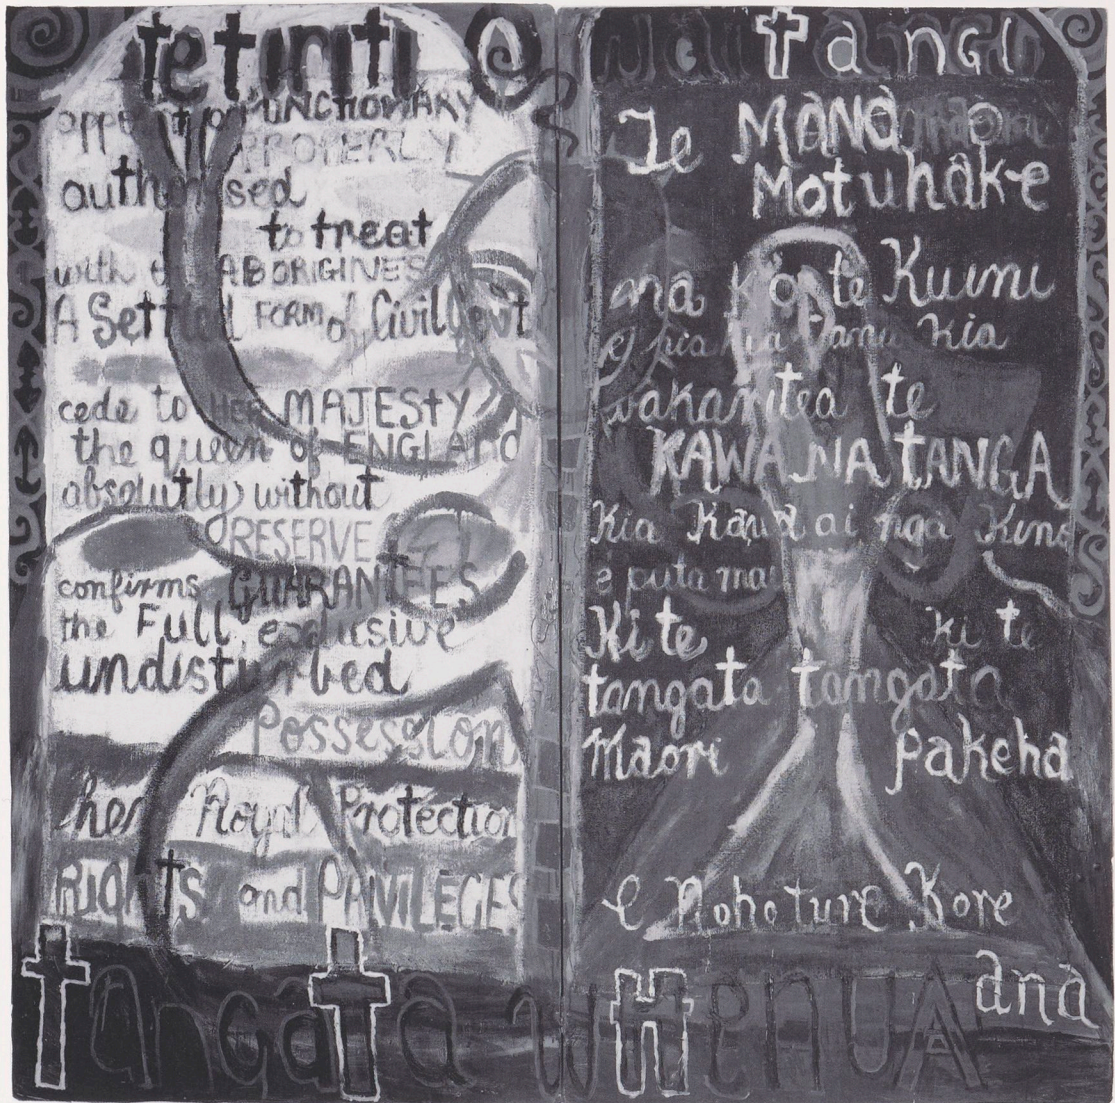 te tiriti o
appoint a FUNCTIONARY
PROPERLY
authorised
to treat
with the ABORIGINES
A Settled FORM of Civil Govt
cede to HER MAJESTY
the queen of ENGLAND
absolutly without
RESERVE
confirms GUARANTEES
the Full exclusive
undisturbed
Possession
her Royal Protection
RIGHTS and PRIVILEGES
Waitangi
Te MANA
Motuhake
na ko te Kuini
e kia
wakaritea te
KAWANATANGA
Kia Kaua ai nga Kino
e puta mai
Ki te ki te
tangata tangata
Maori pakeha
e Noho ture Kore
ana
tangata wHenuA